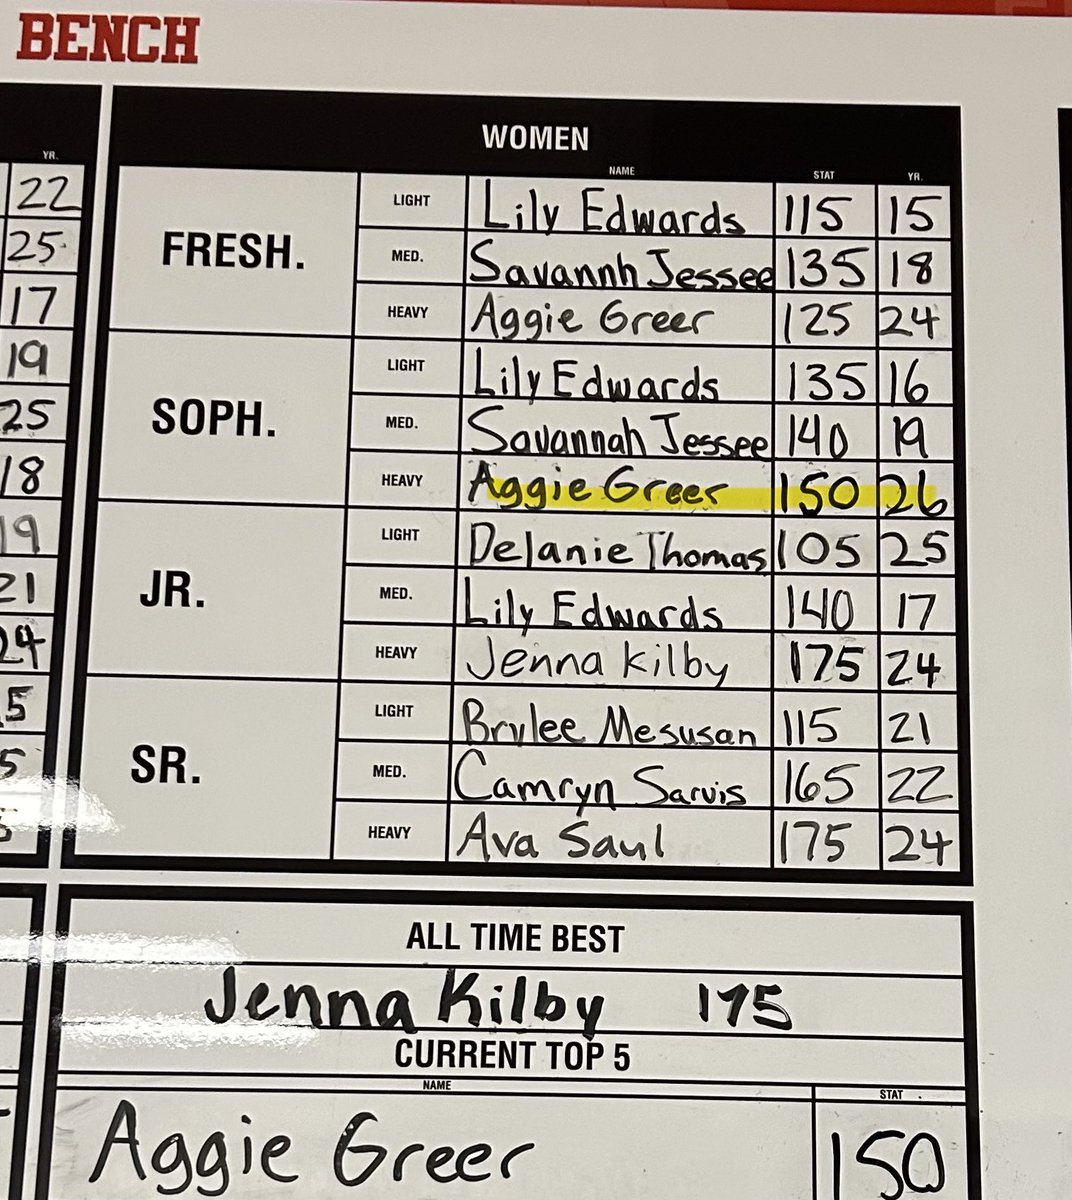 BENCH
WOMEN
YR. NAME STAT YR.
22 FRESH. LIGHT Lily Edwards 115 15
25 MED. Savannh Jessee 135 18
17 HEAVY Aggie Greer 125 24
19 SOPH. LIGHT Lily Edwards 135 16
25 MED. Savannah Jessee 140 19
18 HEAVY Aggie Greer 150 26
19 JR. LIGHT Delanie Thomas 105 25
21 MED. Lily Edwards 140 17
24 HEAVY Jenna Kilby 175 24
5 SR. LIGHT Brylee Mesusan 115 21
5 MED. Camryn Sarvis 165 22
HEAVY Ava Saul 175 24
ALL TIME BEST
Jenna Kilby 175
CURRENT TOP 5
NAME STAT
Aggie Greer 150